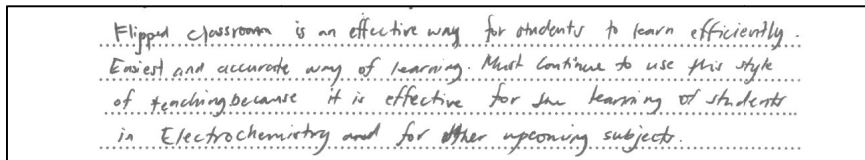 Flipped classroom is an effective way for students to learn efficiently.
Easiest and accurate way of learning. Must continue to use this style
of teaching because it is effective for the learning of students
in Electrochemistry and for other upcoming subjects.